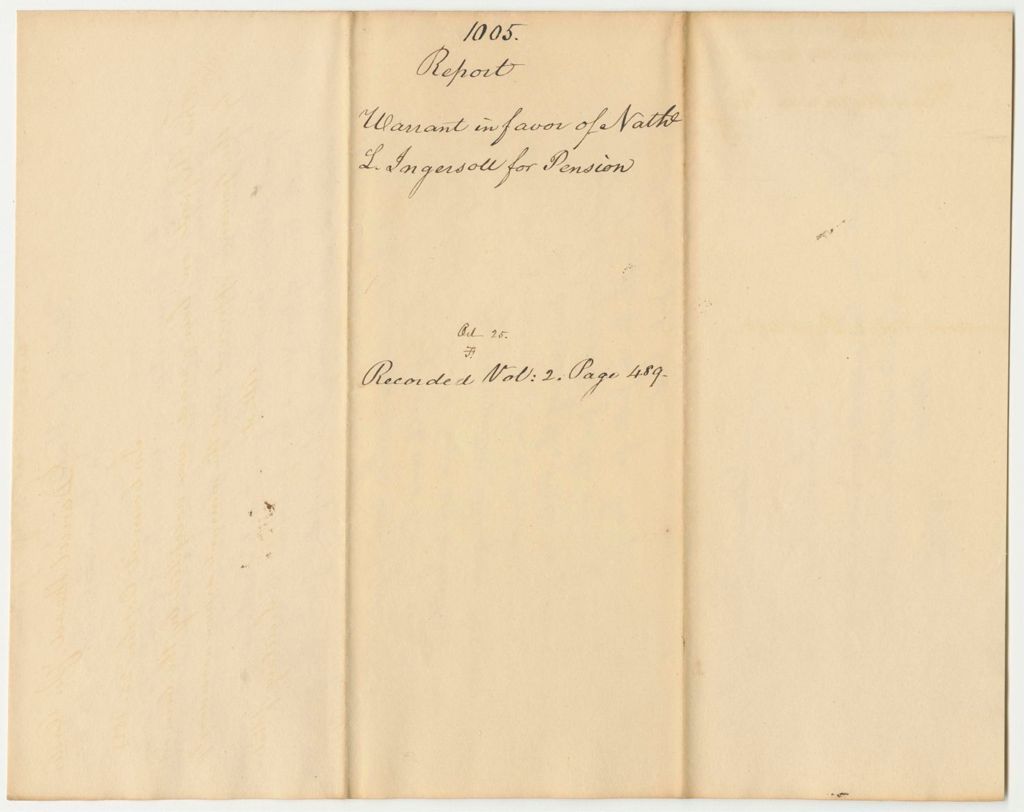 1005.
Report
Warrant in favor of Nathl
L. Ingersoll for Pension
Oct 25.
Recorded Vol: 2. Page 489-